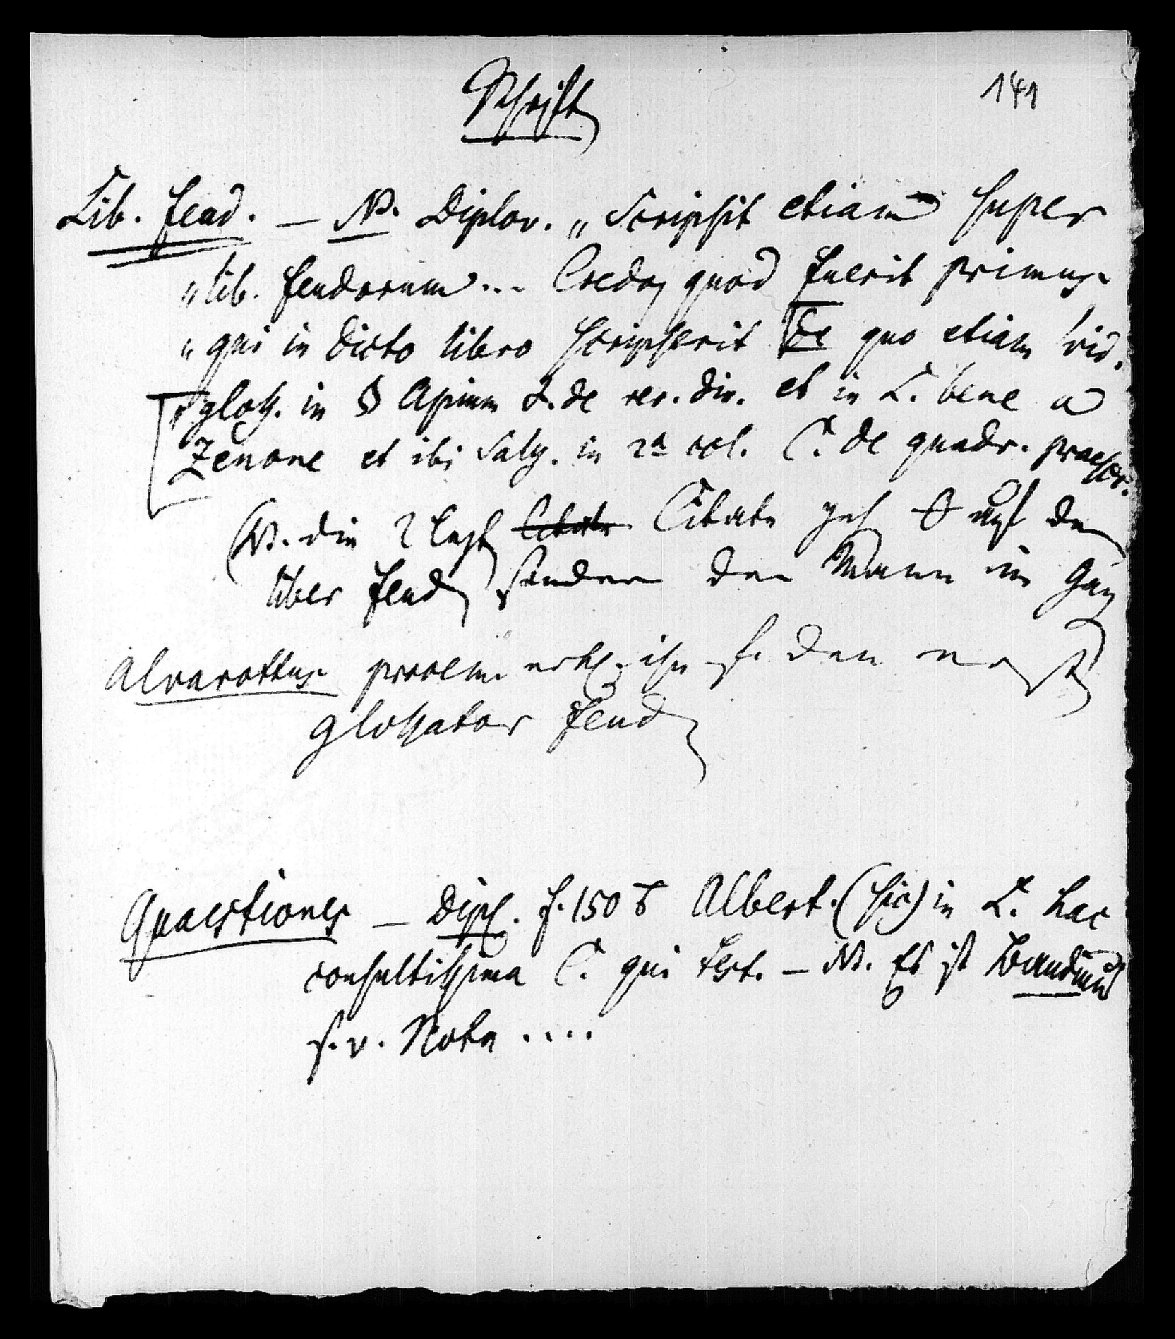 Schrift
141
Lib. feud. — NB. Diplov. „Scripsit etiam super
„lib. feudorum... Credo, quod fuerit primus
„qui in dicto libro scripserit [de quo etiam vid.
„gloss. in § Apium I. de rer. div. et in L. bene a
Zenone et ibi Saly. in 2ª col. C. de quadr. praescr.
(NB. die 2 letzt Citate Citate geh auf den
liber feud, sondern den Mann im Ganz
Alvarottus prooem. ihn den erst
glossator feud
Quaestiones — Dipl. f. 150 b Albert. (sic) in L. hac
consultissima C. qui test. — NB. Es ist
s. v. Nota ....